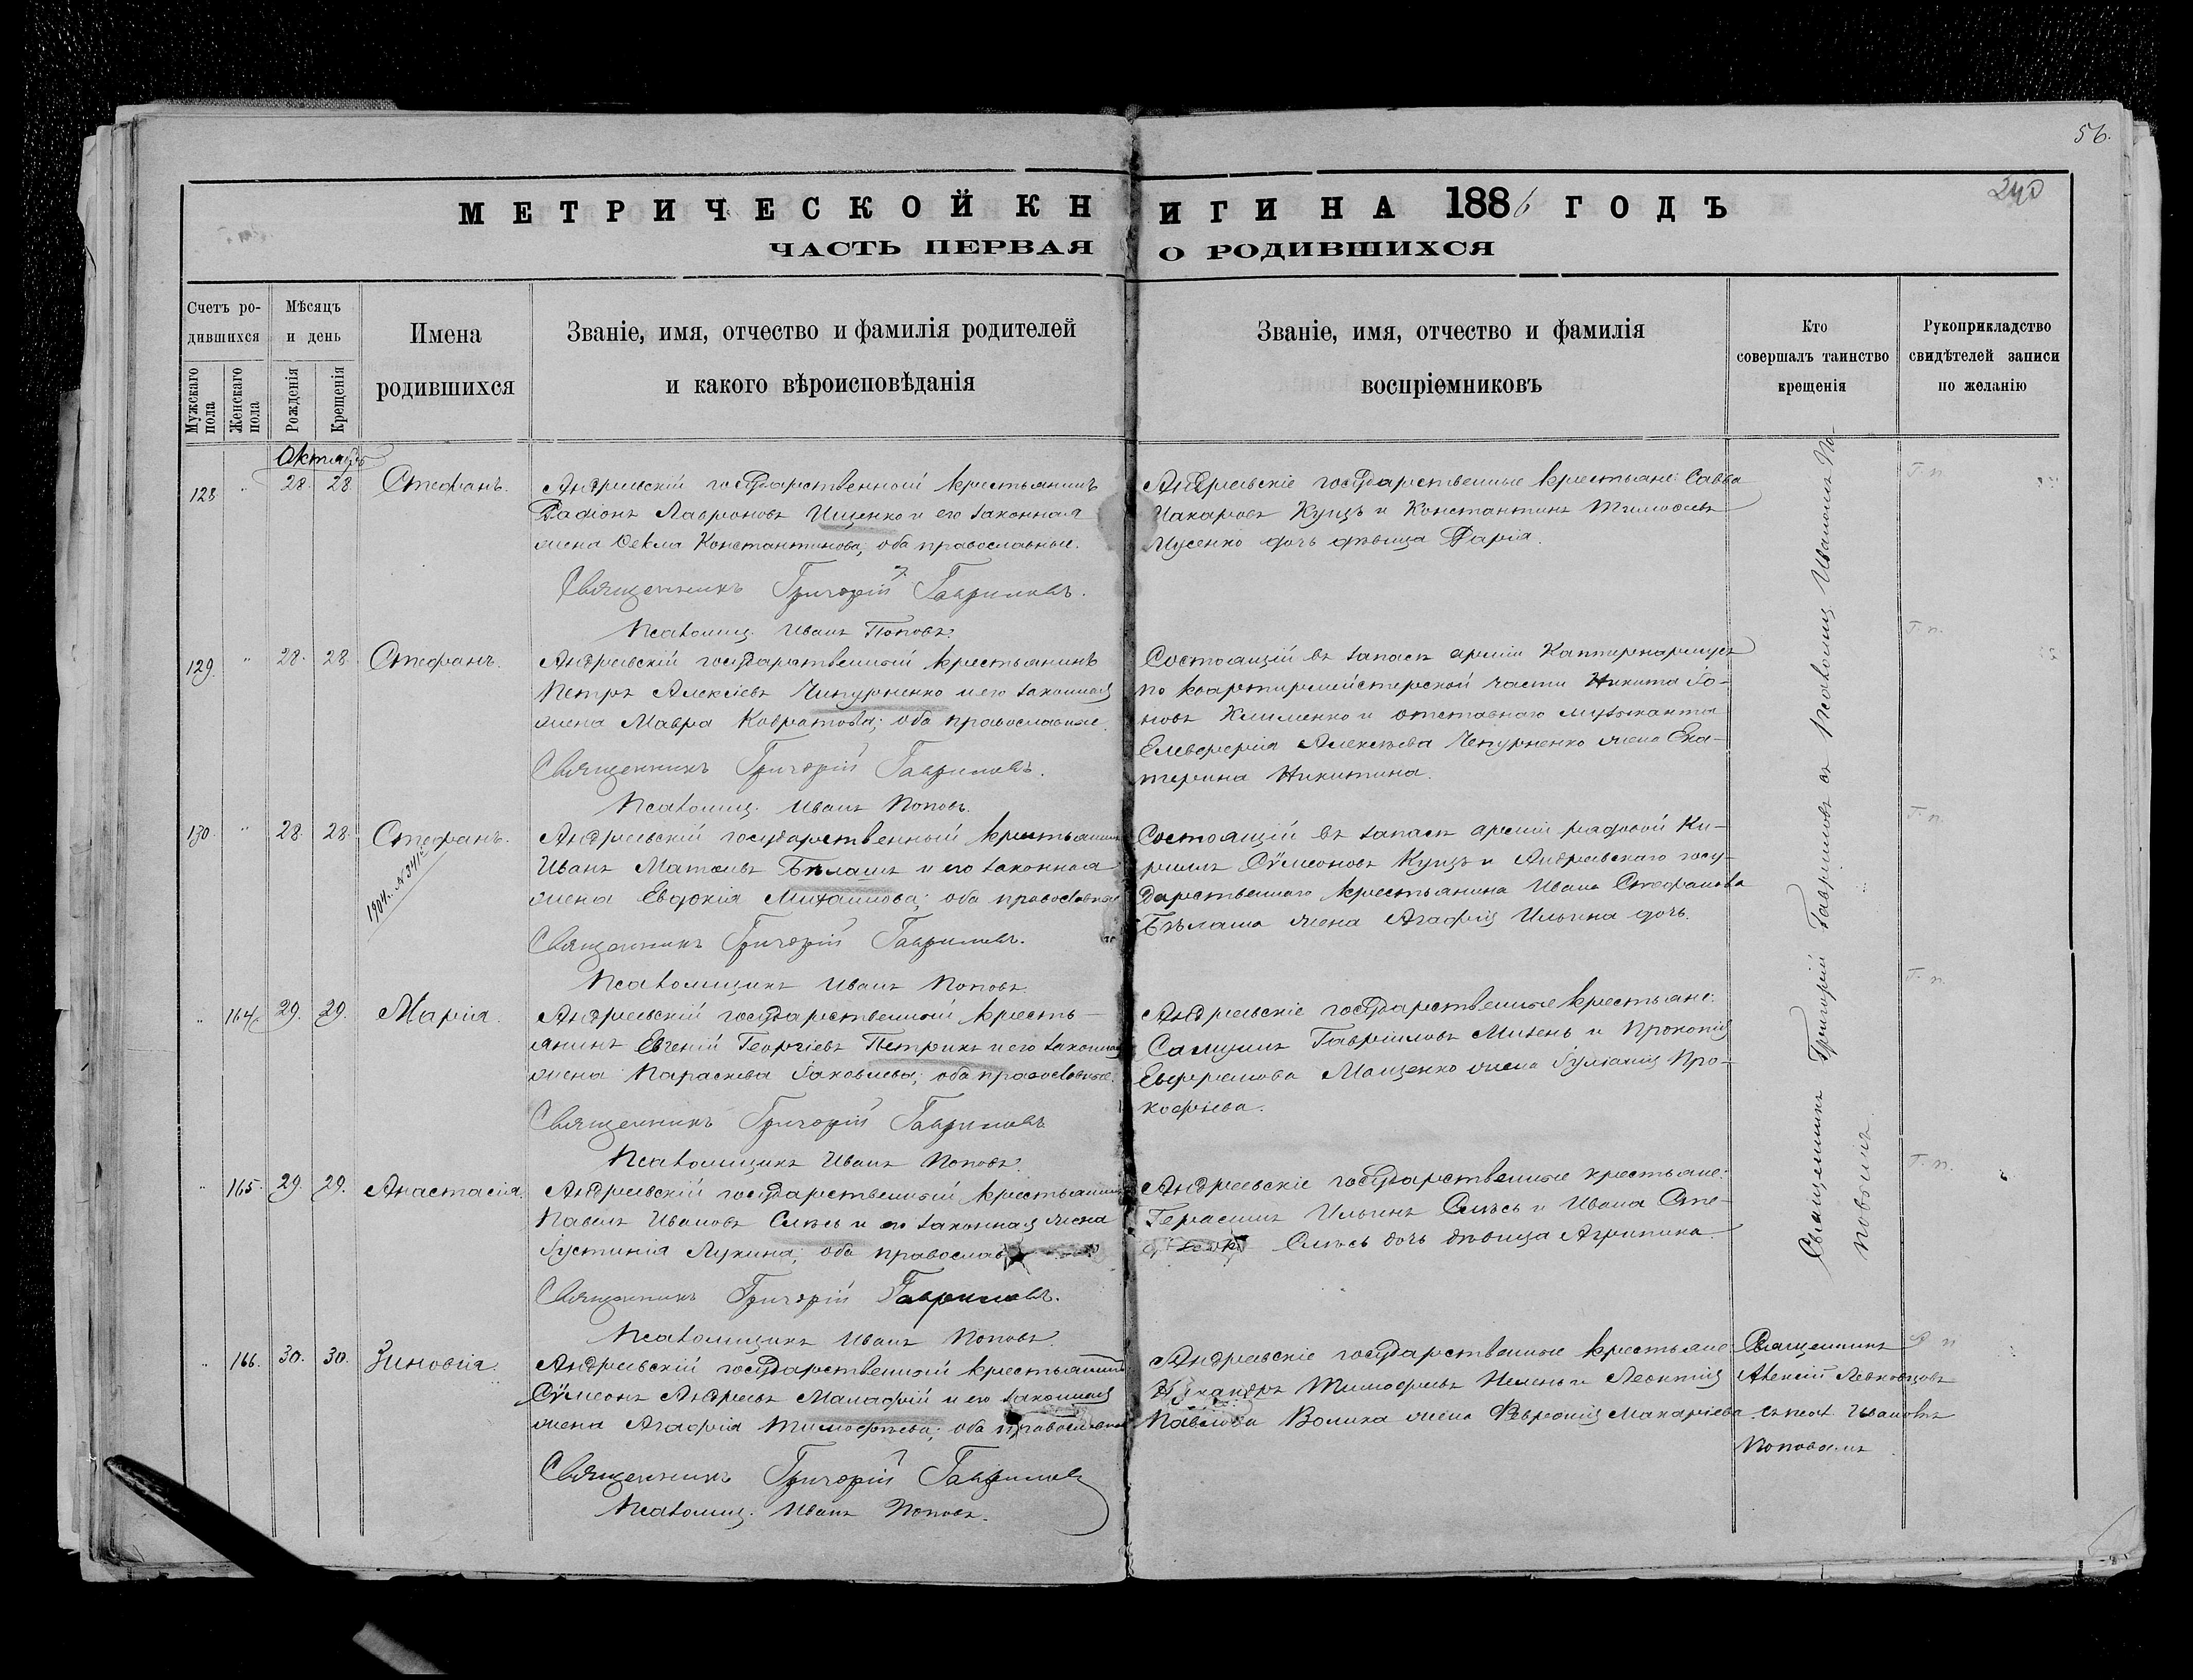 56.
240
МЕТРИЧЕСКОЙ КНИГИ НА 1886 ГОДЪ
ЧАСТЬ ПЕРВАЯ О РОДИВШИХСЯ
Счетъ ро-
дившихся
Мужскаго
пола
Женскаго
пола
Мѣсяцъ
и день
Рожденія
Крещенія
Имена
родившихся
Званіе, имя, отчество и фамилія родителей
и какого вѣроисповѣданія
Званіе, имя, отчество и фамилія
воспріемниковъ
Кто
совершалъ таинство
крещенія
Рукоприкладство
свидѣтелей записи
по желанію
Октябрь
128 " 28. 28 Стефанъ.
Андреевскій государственный крестьянинъ
Лавроновъ Ищенко и его законная
жена Ѳекла Константинова; оба православные.
Священникъ Григорій Гавриловъ.
Псаломщ. Иванъ Поповъ.
Андреевскіе государственные крестьяне: Савва
Макаровъ Куцъ и Константина Тимоѳеева
Мусенко дочь дѣвица Дарія.
129. " 28. 28. Стефанъ.
Андреевскій государственный крестьянинъ
Петръ Алексіевъ Чепурненко и его законная
жена Мавра Кодратова; оба православные.
Священникъ Григорій Гавриловъ.
Псаломщ. Иванъ Поповъ.
Состоящій въ запасѣ арміи Каптенармусъ
по квартирмейстерской части Никита Іо-
новъ Клименко и отставнаго музыканта
Елевферія Алексѣева Чепурненко жена Ека-
терина Никитина.
130. " 28. 28. Стефанъ.
1904. N 341
Андреевскій государственный крестьянинъ
Иванъ Матѳеевъ Бѣлашъ и его законная
жена Евдокія Михаилова; оба православные
Священникъ Григорій Гавриловъ.
Псаломщикъ Иванъ Поповъ
Состоящій въ запасѣ арміи рядовой Ки-
риллъ Сѵмеоновъ Куцъ и Андреевскаго госу-
дарственнаго крестьянина Ивана Стефанова
Бѣлаша жена Агафія Ильина дочь.
" 164. 29. 29. Марія.
Андреевскій государственный кресть-
янинъ Евгеній Георгіевъ Петрикъ и его законная
жена Параскева Іаковлева; оба православные.
Священникъ Григорій Гавриловъ
Псаломщикъ Иванъ Поповъ.
Андреевскіе государственные крестьяне:
Самуилъ Гавріиловъ Мизень и Прокопія
Ефремова Мащенко жена Іуліанія Про-
кофіева.
" 165. 29. 29. Анастасія.
Андреевскій государственный крестьянинъ
Павелъ Ивановъ Слѣсь и его законная жена
Іустинія Лукина; оба православ
Священникъ Григорій Гавриловъ.
Псаломщикъ Иванъ Поповъ
Андреевскіе государственные крестьяне:
Герасимъ Ильинъ Слѣсь и Ивана Сте-
Слѣсь дочь дѣвица Агрипина.
Священникъ Григорій Гавриловъ съ псаломщ Иваномъ По-
повымъ
" 166. 30. 30. Зиновія.
Андреевскій государственный крестьянинъ
Сѵмеонъ Андреевъ Малафій и его законная
жена Агафія Тимофѣева; оба православные
Священникъ Григорій Гавриловъ
Псаломщ. Иванъ Поповъ.
Андреевскіе государственные крестьяне
Тимофѣевъ и Леонтія
Павлова Волика жена Февронія Макаріева
Священникъ
Алексій Леоновъ
съ псал. Иваномъ
Поповымъ
Г. п.
Г. п.
Г. п.
Г. п.
Г. п.